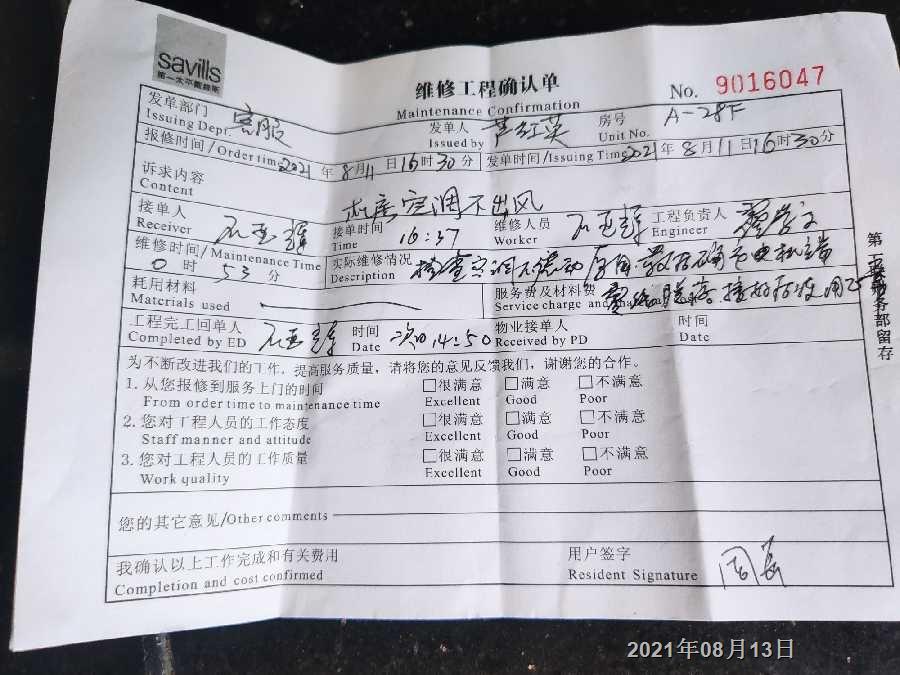 savills
第一太平戴维斯
维修工程确认单
Maintenance Confirmation
No. 9016047
发单部门 客服 发单人 房号 A-28F
Issuing Dept. Issued by Unit No.
报修时间/Order time 2021年8月11日16时30分 发单时间/Issuing Time 2021年8月11日16时30分
诉求内容 空调不出风
Content
接单人 接单时间 16:37 维修人员 工程负责人
Receiver Time Worker Engineer
维修时间/Maintenance Time 实际维修情况 检查空调不
0时53分 Description
耗用材料 服务费及材料费
Materials used Service charge and
工程完工回单人 时间 14:50 物业接单人 时间
Completed by ED Date Received by PD Date
为不断改进我们的工作，提高服务质量，请将您的意见反馈我们，谢谢您的合作。
1. 从您报修到服务上门的时间 □很满意 □满意 □不满意
From order time to maintenance time Excellent Good Poor
2. 您对工程人员的工作态度 □很满意 □满意 □不满意
Staff manner and attitude Excellent Good Poor
3. 您对工程人员的工作质量 □很满意 □满意 □不满意
Work quality Excellent Good Poor
您的其它意见/Other comments
我确认以上工作完成和有关费用 用户签字
Completion and cost confirmed Resident Signature
务部留存
2021年08月13日